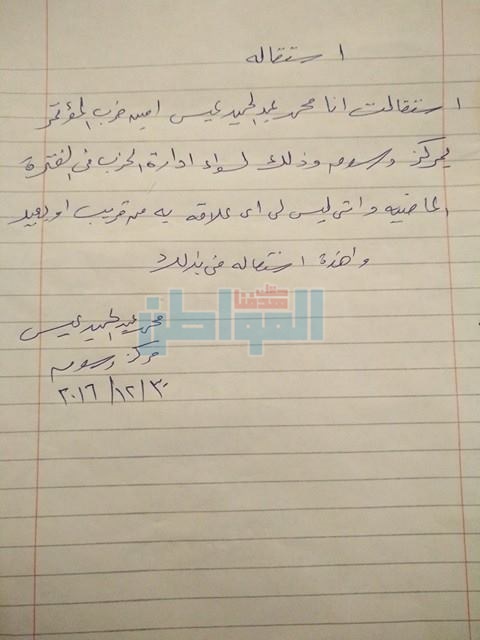 استقاله
استقالت انا محمد عبد الحميد عيس امين حزب المؤتمر
بمركز وذلك لسواء ادارة الحزب في الفترة
الماضيه وانني ليس لى اى علاقه به من قريب او بعيد
واهذة استقاله مني بذلك
المواطن
محمد عبد الحميد عيس
مركز
٣٠/١٢/٢٠١٦